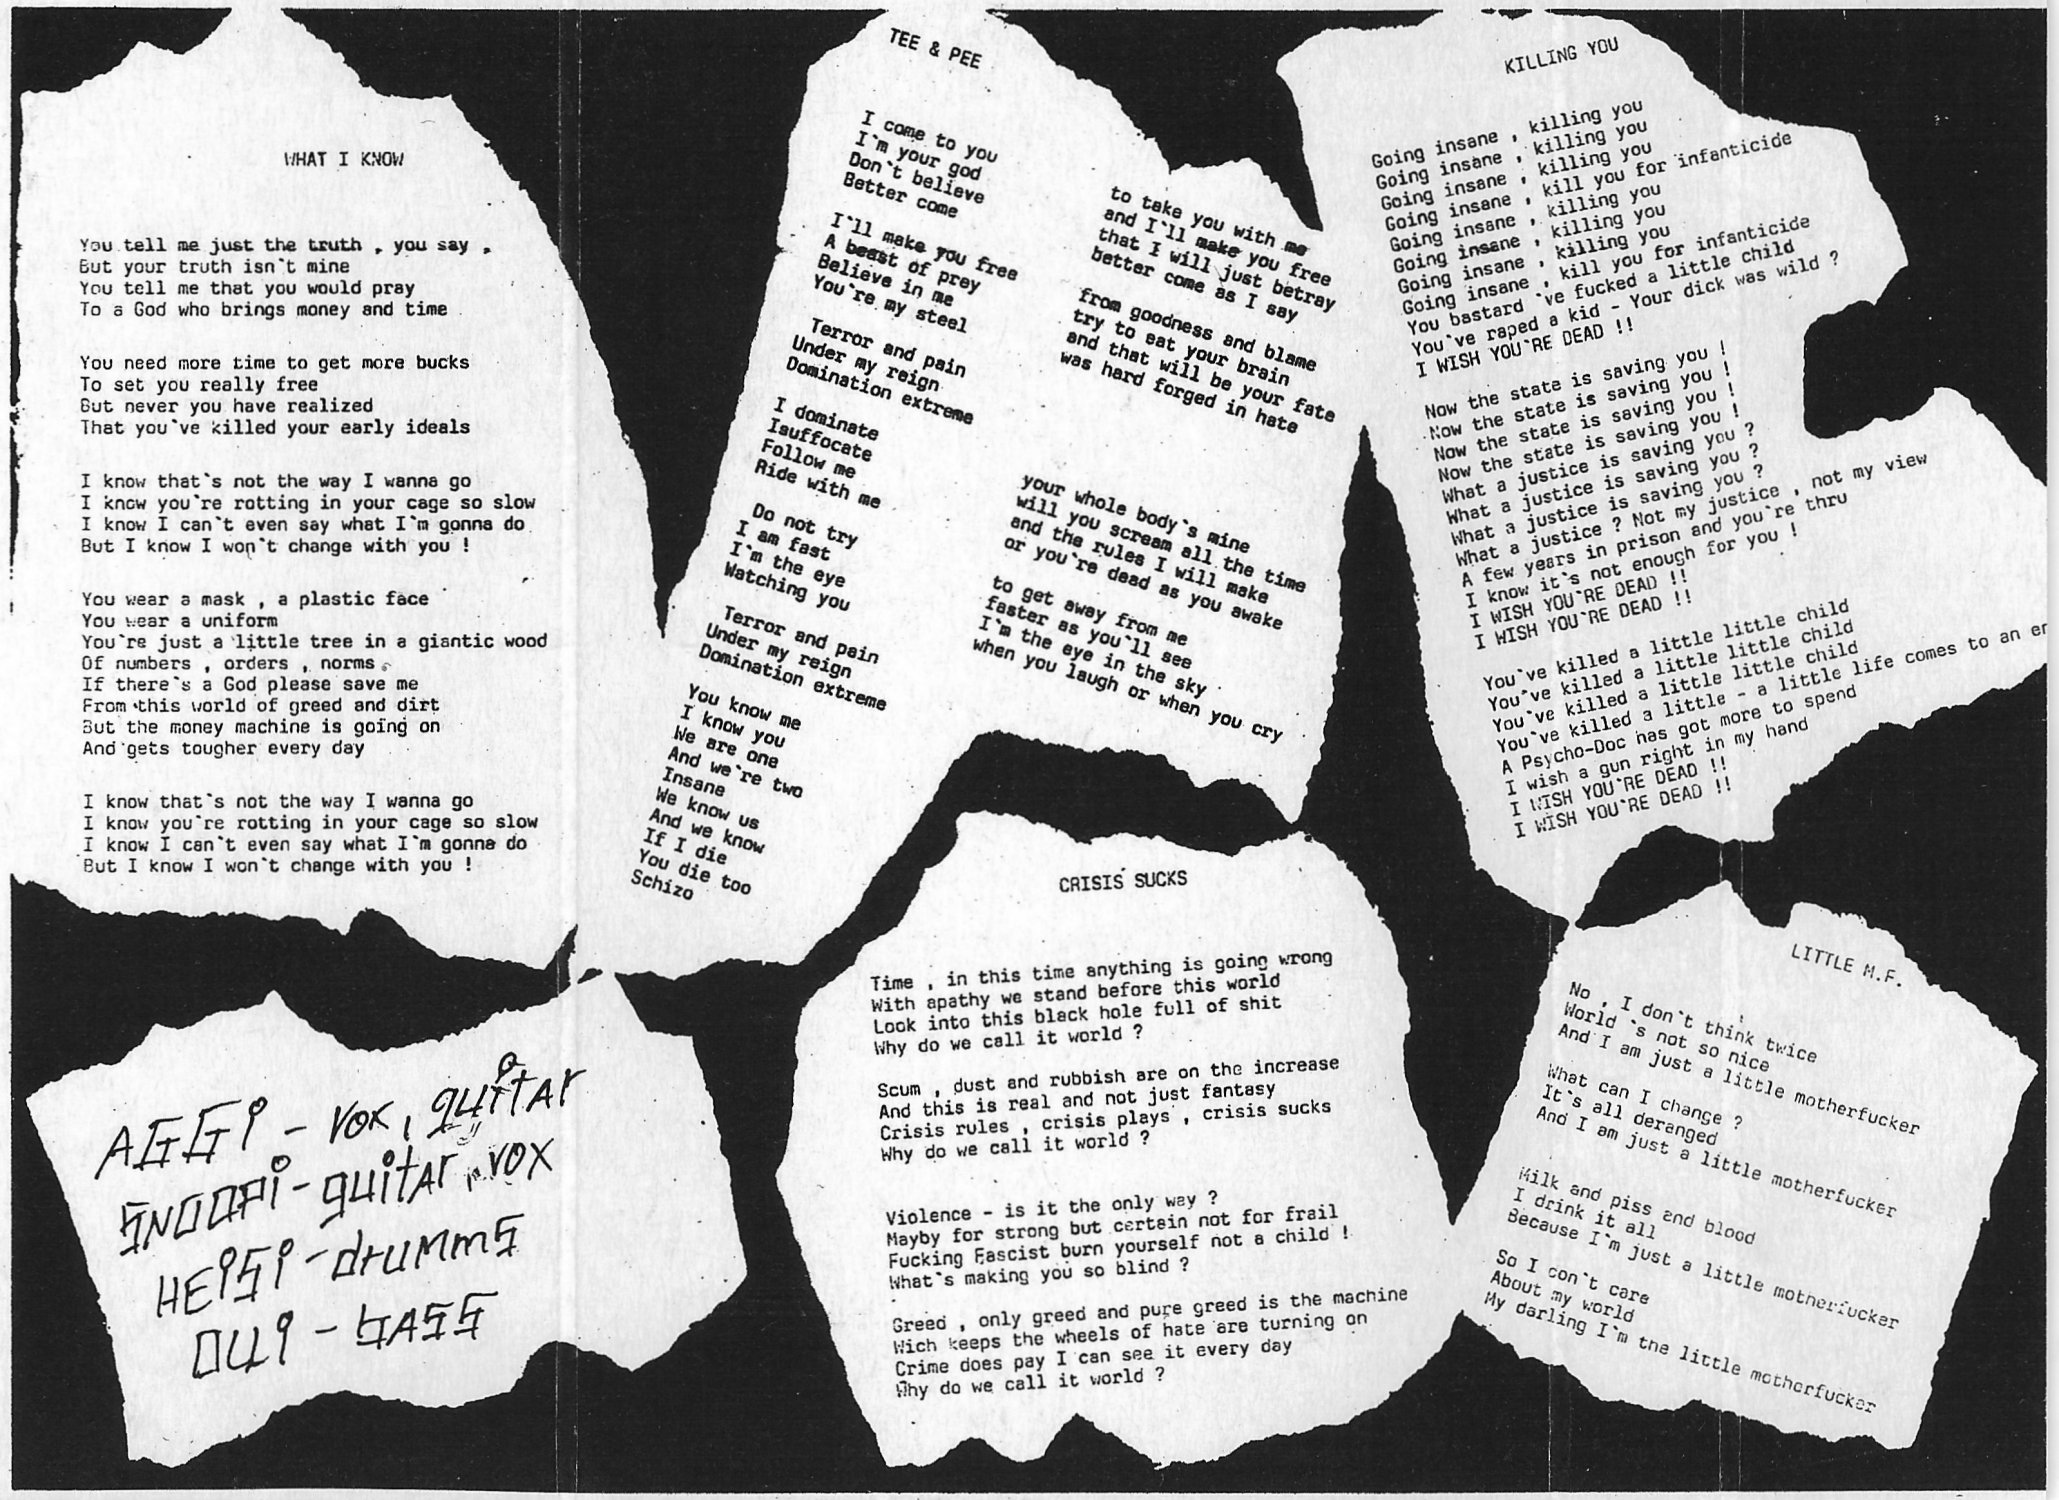 WHAT I KNOW
You tell me just the truth , you say ,
But your truth isn`t mine
You tell me that you would pray
To a God who brings money and time
You need more time to get more bucks
To set you really free
But never you have realized
That you`ve killed your early ideals
I know that`s not the way I wanna go
I know you`re rotting in your cage so slow
I know I can`t even say what I`m gonna do
But I know I won`t change with you !
You wear a mask , a plastic face
You wear a uniform
You`re just a little tree in a giantic wood
Of numbers , orders , norms
If there`s a God please save me
From this world of greed and dirt
But the money machine is going on
And gets tougher every day
I know that`s not the way I wanna go
I know you`re rotting in your cage so slow
I know I can`t even say what I`m gonna do
But I know I won`t change with you !
TEE & PEE
I come to you
I`m your god
Don`t believe
Better come
I`ll make you free
A beast of prey
Believe in me
You`re my steel
Terror and pain
Under my reign
Domination extreme
I dominate
Isuffocate
Follow me
Ride with me
Do not try
I am fast
I`m the eye
Watching you
Terror and pain
Under my reign
Domination extreme
You know me
I know you
We are one
And we`re two
Insane
We know us
And we know
If I die
You die too
Schizo
to take you with me
and I`ll make you free
that I will just betray
better come as I say
from goodness and blame
try to eat your brain
and that will be your fate
was hard forged in hate
your whole body`s mine
will you scream all the time
and the rules I will make
or you`re dead as you awake
to get away from me
faster as you`ll see
I`m the eye in the sky
when you laugh or when you cry
KILLING YOU
Going insane , killing you
Going insane , killing you
Going insane , killing you
Going insane , kill you for infanticide
Going insane , killing you
Going insane , killing you
Going insane , killing you
Going insane , kill you for infanticide
You bastard `ve fucked a little child
You`ve raped a kid - Your dick was wild ?
I WISH YOU`RE DEAD !!
Now the state is saving you !
Now the state is saving you !
Now the state is saving you !
Now the state is saving you !
What a justice is saving you ?
What a justice is saving you ?
What a justice is saving you ?
What a justice ? Not my justice , not my view
A few years in prison and you`re thru
I know it`s not enough for you !
I WISH YOU`RE DEAD !!
I WISH YOU`RE DEAD !!
You`ve killed a little little child
You`ve killed a little little child
You`ve killed a little little child
You`ve killed a little - a little life comes to an er
A Psycho-Doc has got more to spend
I wish a gun right in my hand
I WISH YOU`RE DEAD !!
I WISH YOU`RE DEAD !!
AGGI - vox, guitar
SNOOPI - guitar, vox
HEISI - drumms
OLLI - bASS
CRISIS SUCKS
Time , in this time anything is going wrong
With apathy we stand before this world
Look into this black hole full of shit
Why do we call it world ?
Scum , dust and rubbish are on the increase
And this is real and not just fantasy
Crisis rules , crisis plays , crisis sucks
Why do we call it world ?
Violence - is it the only way ?
Mayby for strong but certain not for frail
Fucking Fascist burn yourself not a child !
What`s making you so blind ?
Greed , only greed and pure greed is the machine
Wich keeps the wheels of hate are turning on
Crime does pay I can see it every day
Why do we call it world ?
LITTLE M.F.
No , I don`t think twice
World `s not so nice
And I am just a little motherfucker
What can I change ?
It`s all deranged
And I am just a little motherfucker
Milk and piss and blood
I drink it all
Because I`m just a little motherfucker
So I con`t care
About my world
My darling I`m the little motherfucker